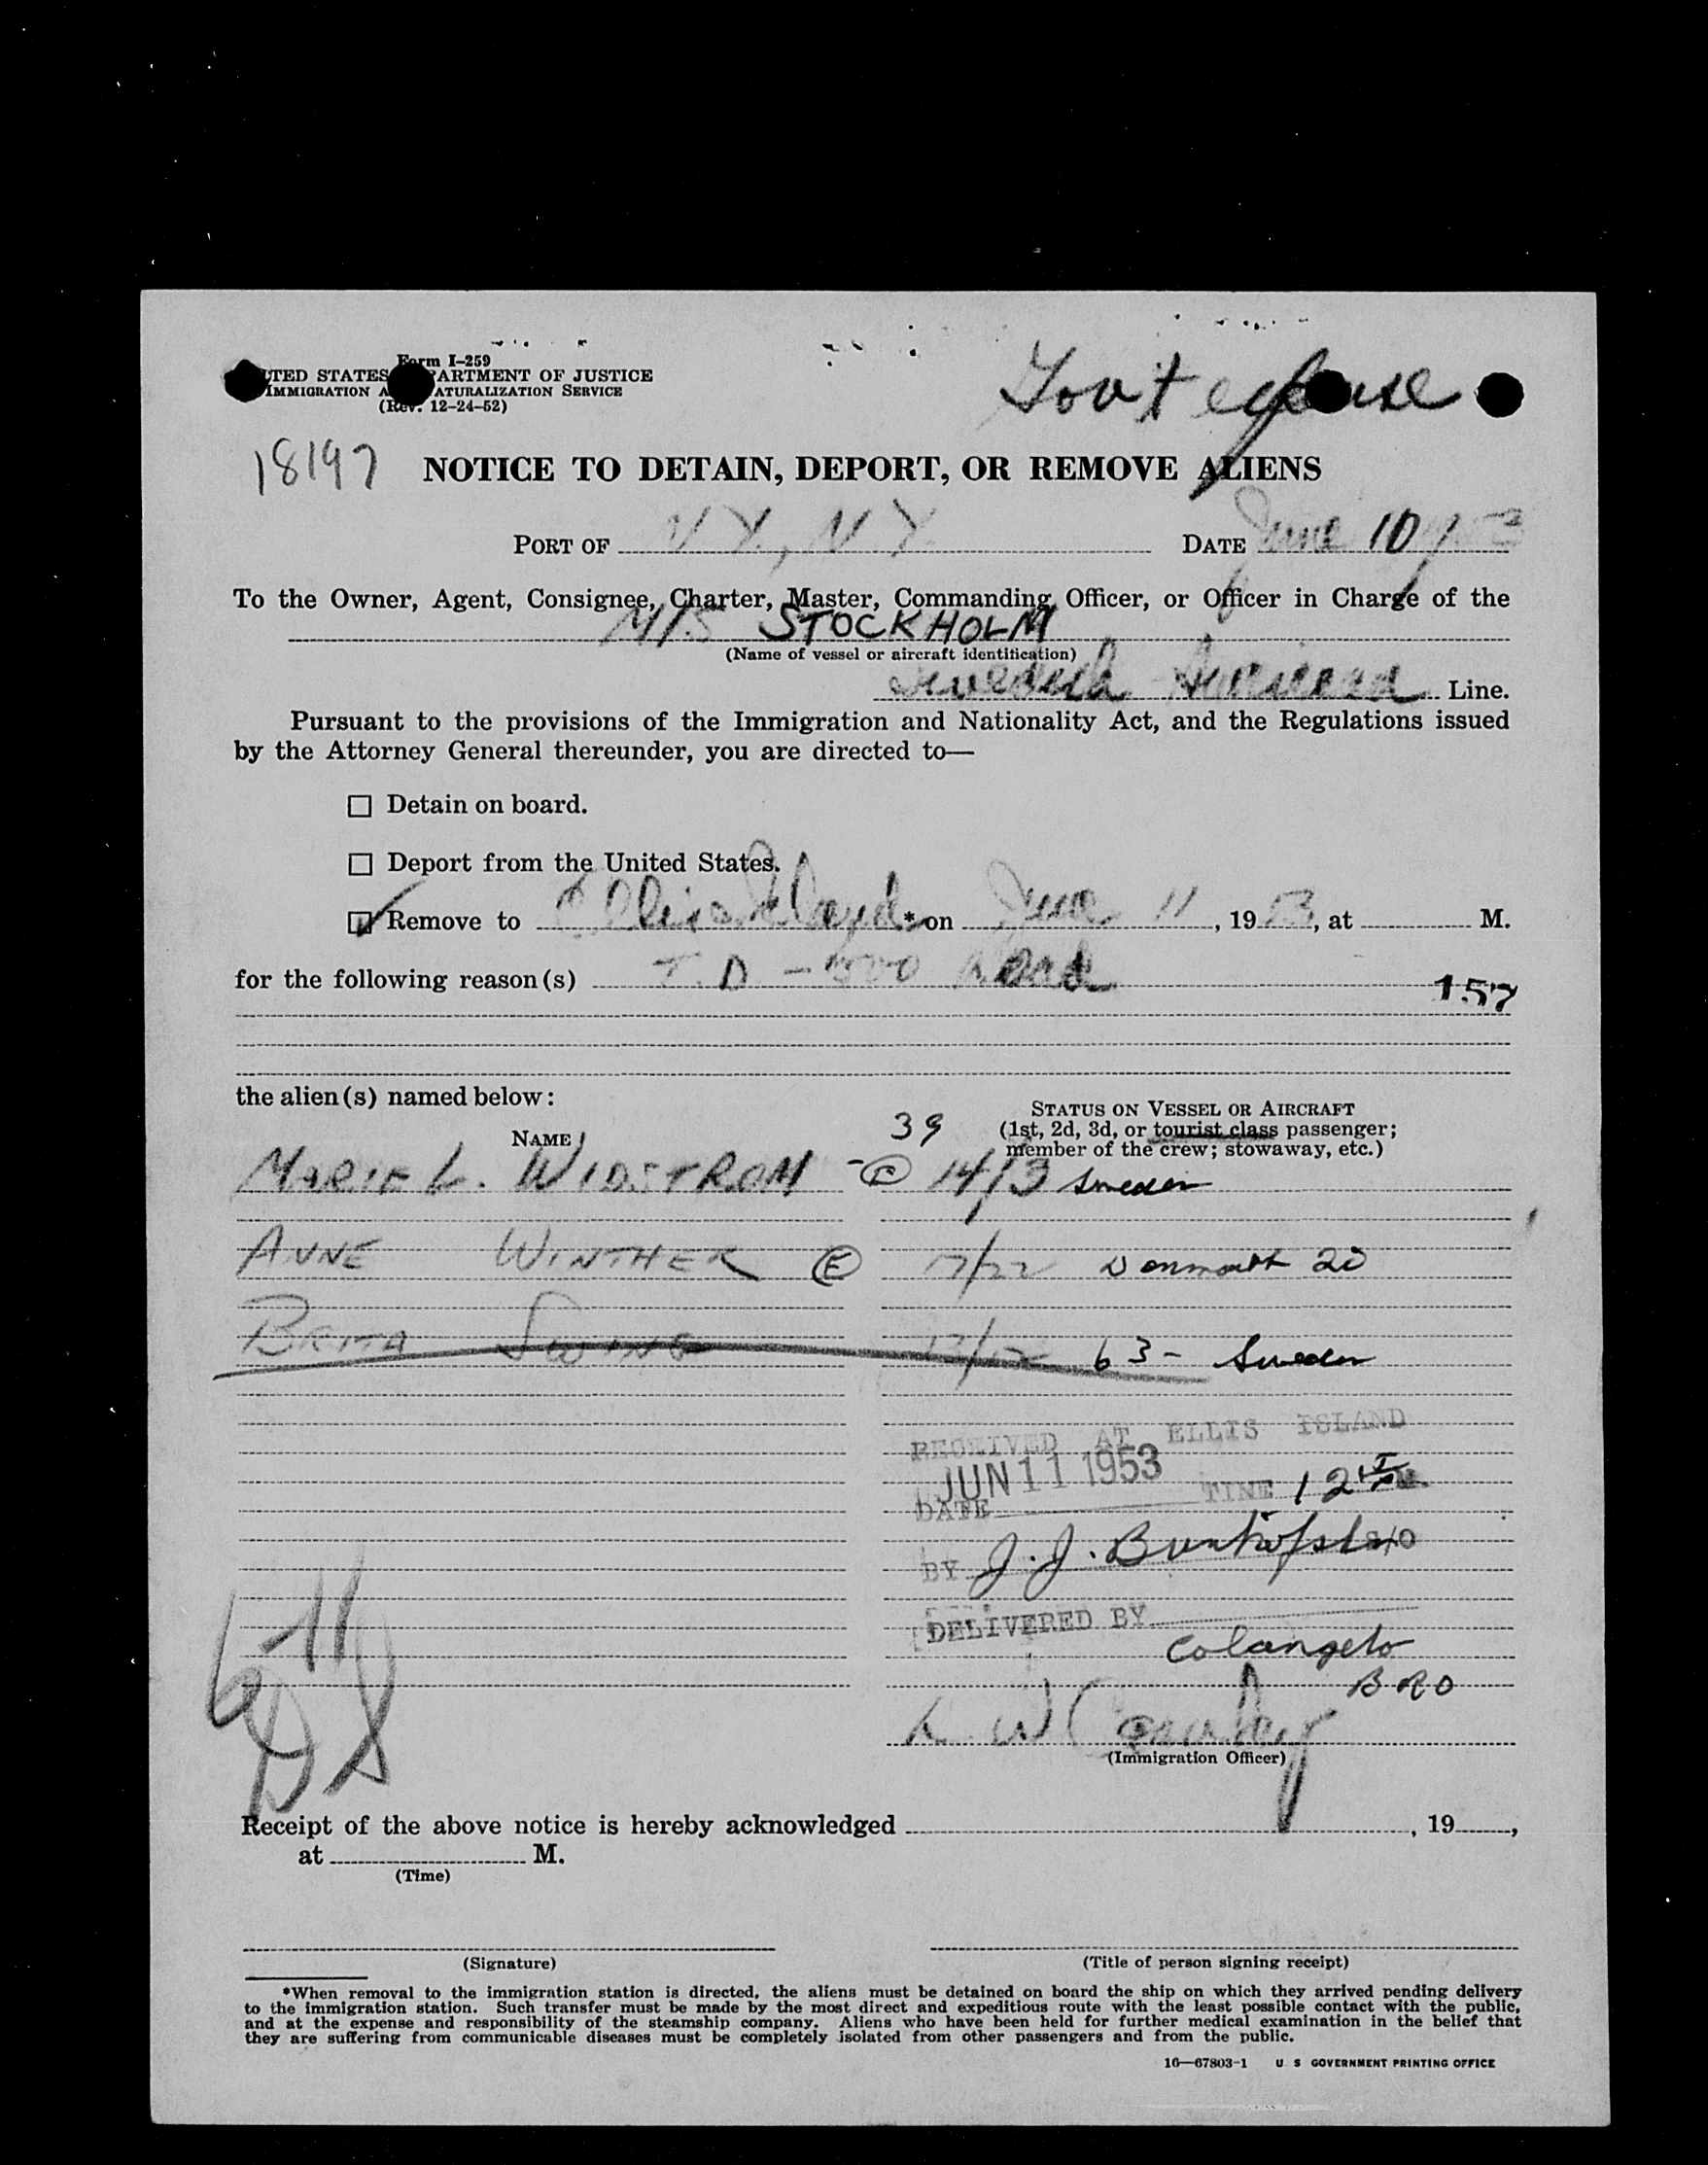 Form I-259
UNITED STATES DEPARTMENT OF JUSTICE
IMMIGRATION AND NATURALIZATION SERVICE
(Rev. 12-24-52)
Gov't expense
18197
NOTICE TO DETAIN, DEPORT, OR REMOVE ALIENS
PORT OF N.Y., N.Y. DATE June 10/53
To the Owner, Agent, Consignee, Charter, Master, Commanding Officer, or Officer in Charge of the
M/S STOCKHOLM
(Name of vessel or aircraft identification)
Swedish American Line.
Pursuant to the provisions of the Immigration and Nationality Act, and the Regulations issued
by the Attorney General thereunder, you are directed to—
☐ Detain on board.
☐ Deport from the United States.
☑ Remove to Ellis Island * on June 11, 1953, at M.
for the following reason(s) T.D - 500 Bond
157
the alien(s) named below:
39
NAME
STATUS ON VESSEL OR AIRCRAFT
(1st, 2d, 3d, or tourist class passenger;
member of the crew; stowaway, etc.)
MARIE L. WIDSTROM 14/3 Sweden
ANNE WINTHER (E) 17/22 Denmark 20
BRITA SWING 63- Sweden
RECEIVED AT ELLIS ISLAND
JUN 11 1953
DATE TIME
BY J.J.
DELIVERED BY
Colangelo
BRO
6-11
(Immigration Officer)
Receipt of the above notice is hereby acknowledged , 19 ,
at M.
(Time)
(Signature) (Title of person signing receipt)
*When removal to the immigration station is directed, the aliens must be detained on board the ship on which they arrived pending delivery
to the immigration station. Such transfer must be made by the most direct and expeditious route with the least possible contact with the public,
and at the expense and responsibility of the steamship company. Aliens who have been held for further medical examination in the belief that
they are suffering from communicable diseases must be completely isolated from other passengers and from the public.
16—67803-1 U. S. GOVERNMENT PRINTING OFFICE